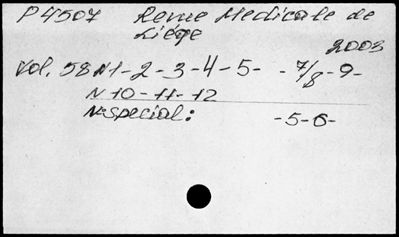 P4507 Revue Medicale de
Liége
2003
Vol. 58 N1-2-3-4-5- -7/8-9-
N 10-11-12
N-special: -5-6-